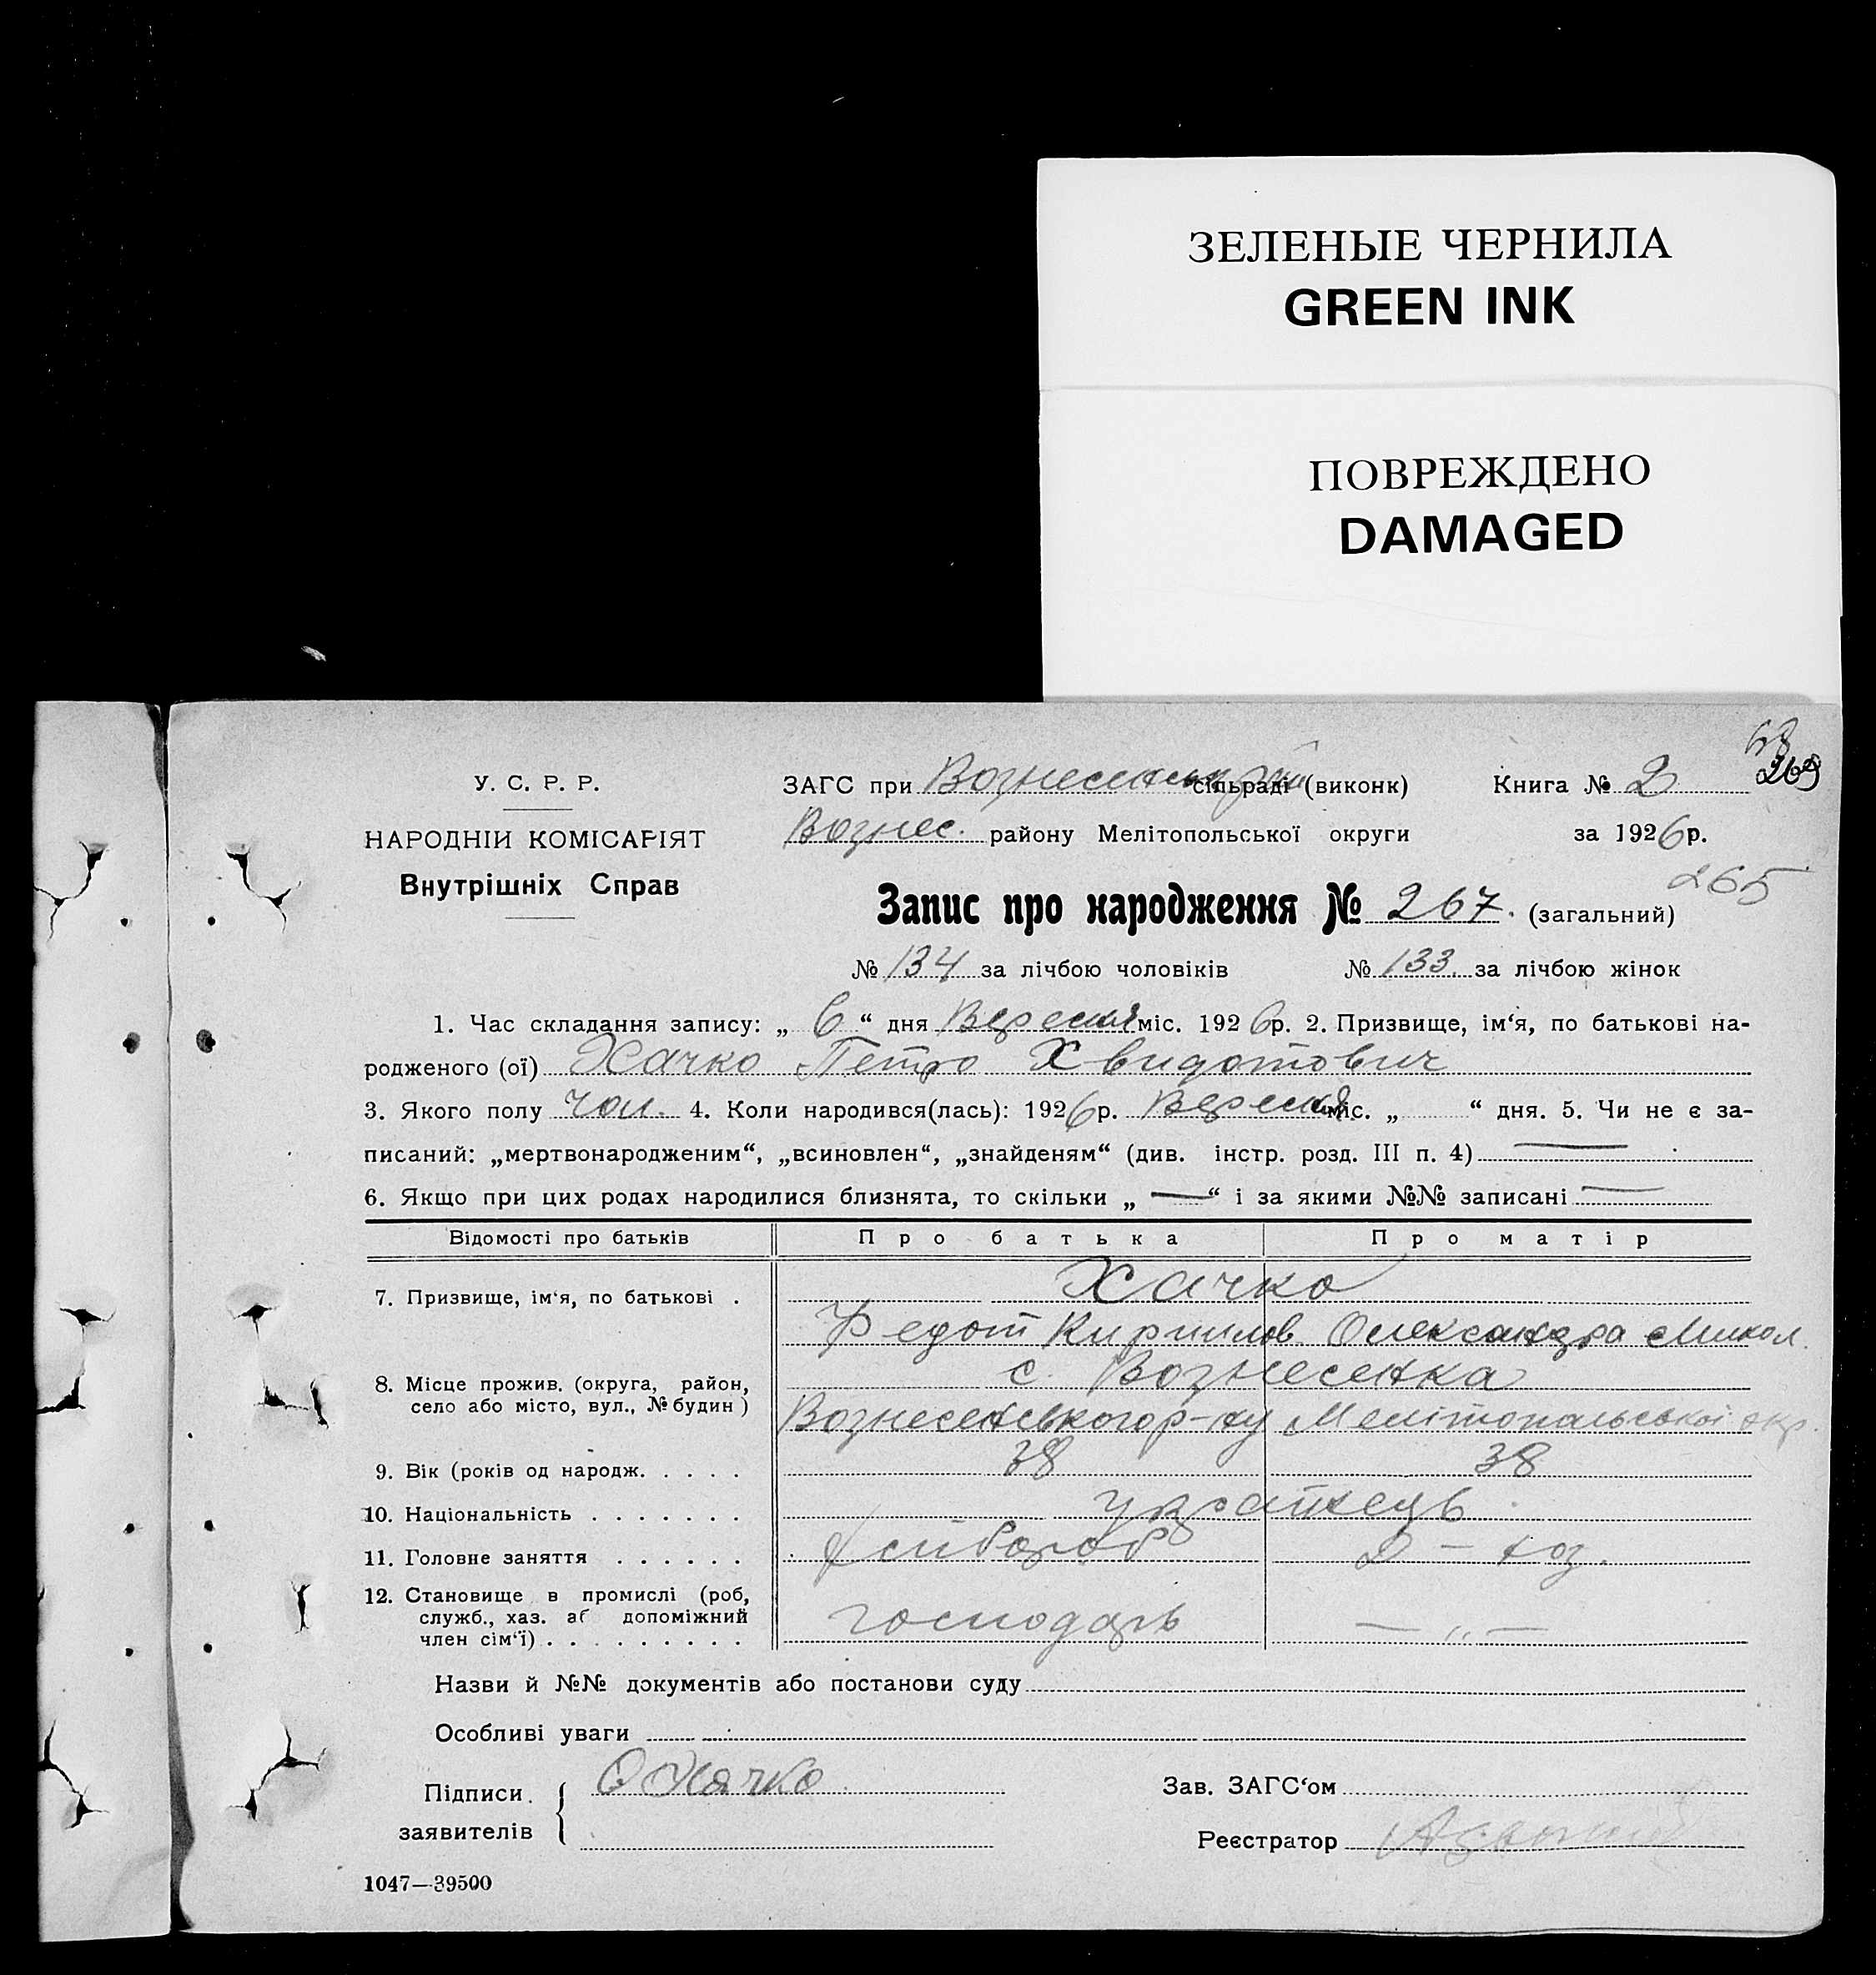 ЗЕЛЕНЫЕ ЧЕРНИЛА
GREEN INK
ПОВРЕЖДЕНО
DAMAGED
У. С. Р. Р.
НАРОДНІЙ КОМІСАРІЯТ
Внутрішніх Справ
ЗАГС при сільраді (виконк)
Книга № 2
Вознес. району Мелітопольської округи
за 1926 р.
265
Запис про народження № 267. (загальний)
№ 134 за лічбою чоловіків № 133 за лічбою жінок
1. Час складання запису: „ 6 “ дня Вересня міс. 1926 р. 2. Призвище, ім‘я, по батькові на-
родженого (ої) Хачко Петро Хвидотович
3. Якого полу чол. 4. Коли народився(лась): 1926 р. Вересня міс. „ “ дня. 5. Чи не є за-
писаний: „мертвонародженим“, „всиновлен“, „знайденям“ (див. інстр. розд. III п. 4) —
6. Якщо при цих родах народилися близнята, то скільки „ — “ і за якими №№ записані —
Відомості про батьків Про батька Про матір
7. Призвище, ім‘я, по батькові . Хачко
Федот Кирилов. Олександра Микол.
8. Місце прожив. (округа, район, село або місто, вул., № будин ) с. Вознесенка
Вознесенського р-ну Мелітопольської окр.
9. Вік (років од народж. . . . . 38 38
10. Національність . . . . . . . українець
11. Головне заняття . . . . . . Хлібороб Д-хоз.
12. Становище в промислі (роб,
служб., хаз. аб допоміжний
член сім‘ї) . . . . . . . . . господарь — „ —
Назви й №№ документів або постанови суду
Особливі уваги
Підписи
заявителів
Хачко
Зав. ЗАГС‘ом
Реєстратор
1047—39500